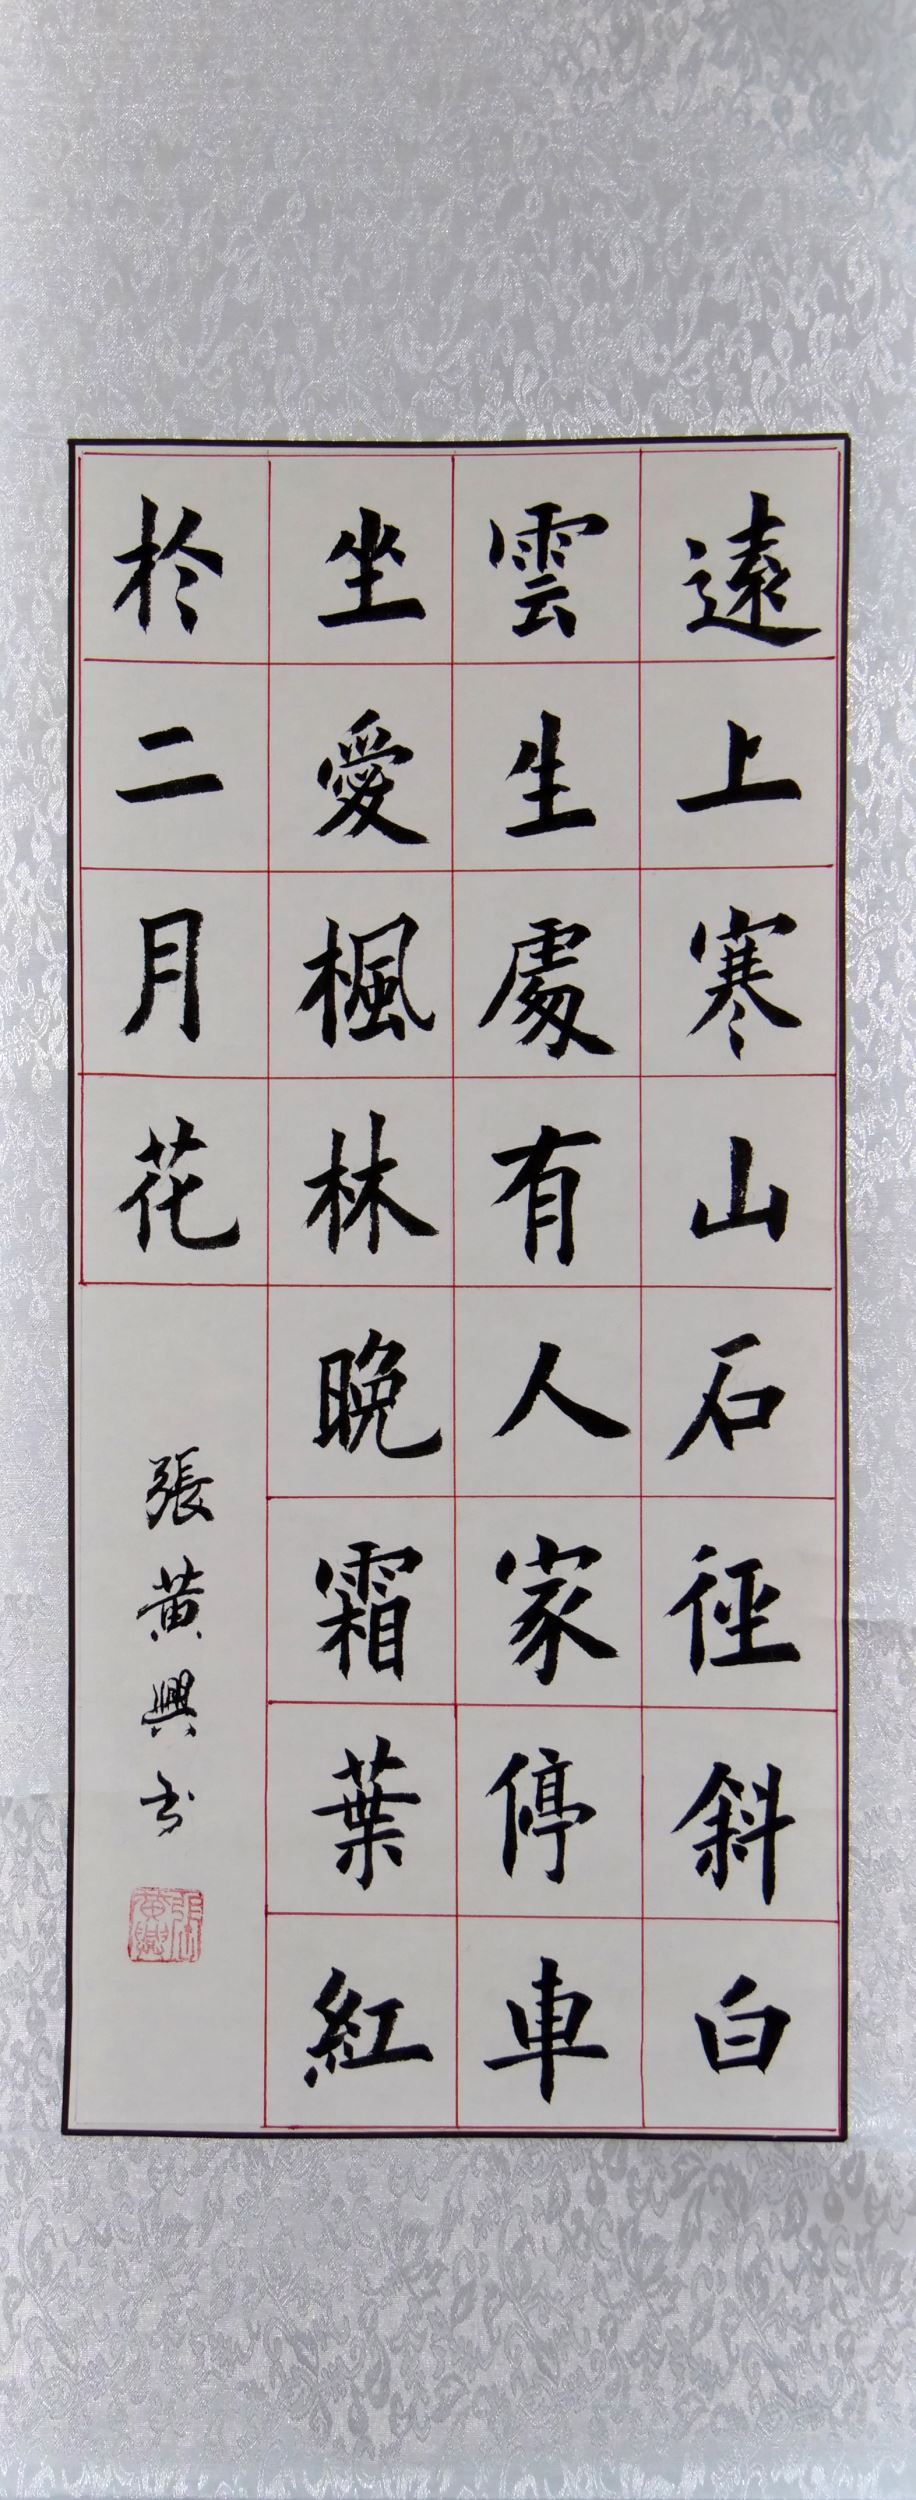 遠上寒山石徑斜白
雲生處有人家停車
坐愛楓林晚霜葉紅
於二月花
張黃興书
張黃興